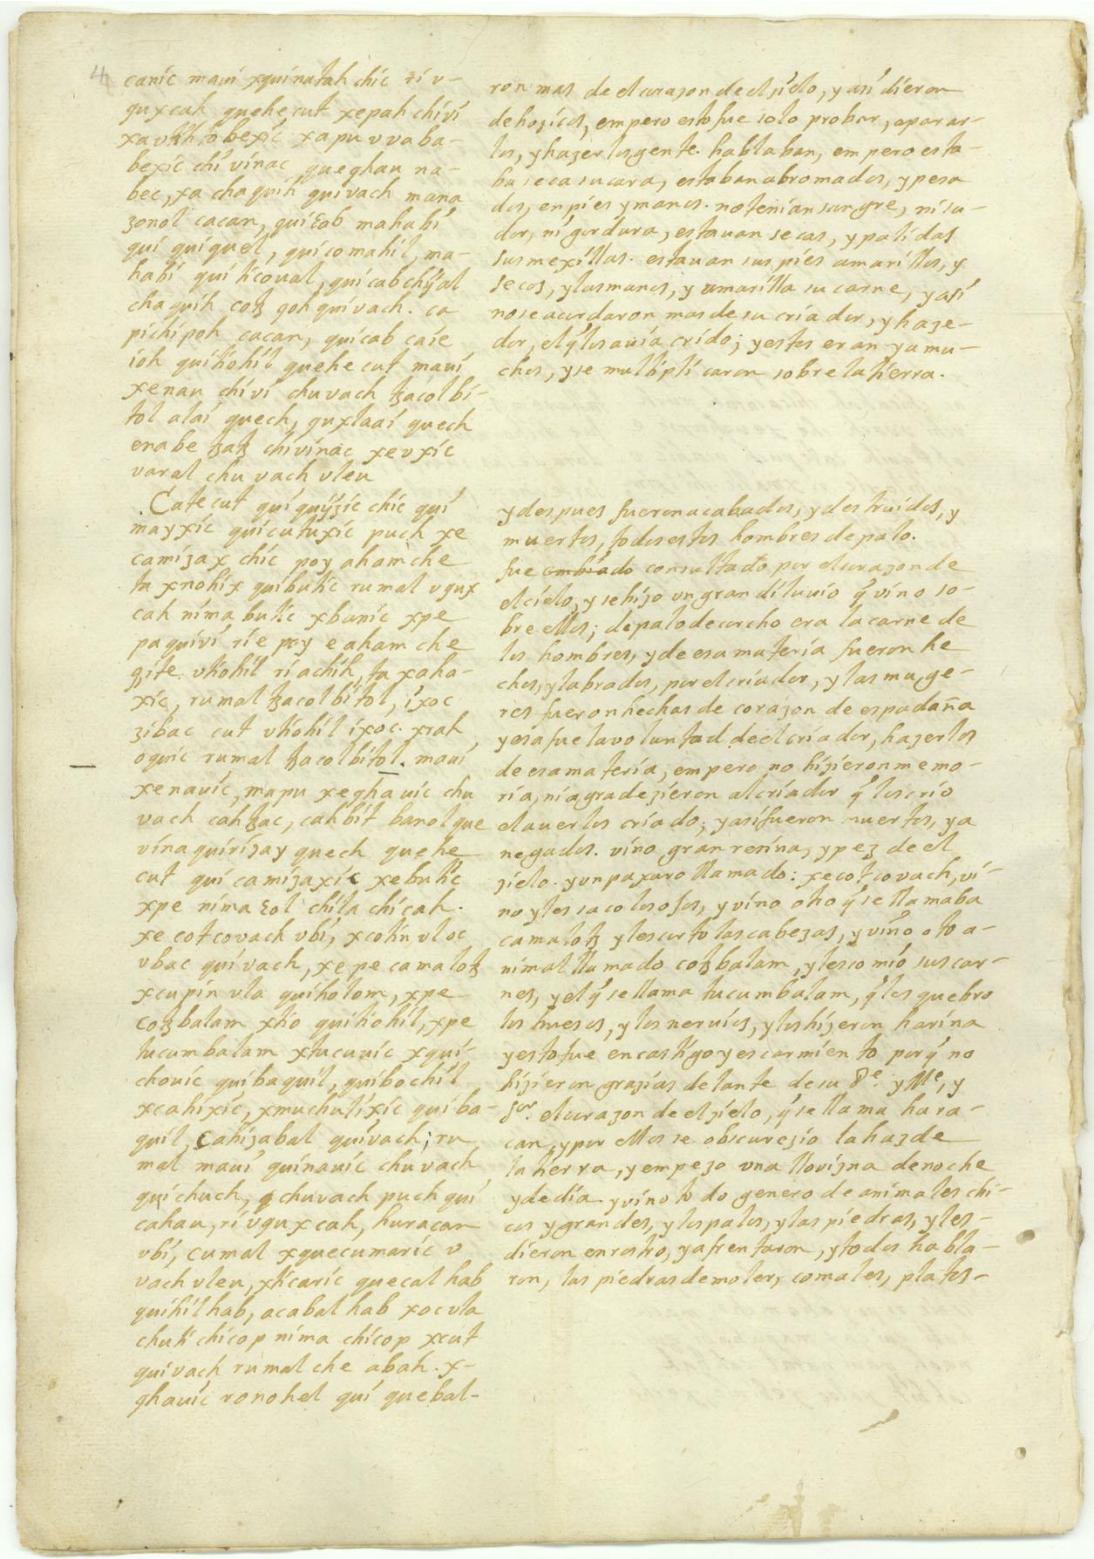 4
canic maui xquinatah chic ri v-
quxcah quehe cut xepah chivi
xa v tihtobexic xa pu v vaba-
bexic chi vinac queghau na-
bec, xa chaquih quivach mana
zonol cacan, quicab mahabi
qui quiquel, quicomahil, ma-
habi qui ticoual, quicabchiial
chaquih cotz goh quivach. ca
pichipoh cacan, quicab caie
ioh quitiohil quehe cut maui
xenau chivi chuvach tzacol bi-
tol alai quech, quxlaai quech
enabe tzatz chi vinac xevxic
varal chu vach vleu
Catecut quiquizic chic qui
mayxic quicutuxic puch xe
camizax chic poy ahamche
ta xnohix quibutic rumal vqux
cah nima butic xbanic xpe
paquivi rie poy e aham che
zite vtiohil ri achih, ta xaha-
xic, rumal tzacol bitol, ixoc
zibac cut vtiohil ixoc xrah
oquic rumal tzacol bitol. maui
xenauic, mapu xeghauic chu
vach cahtzac, cahbit banol que
vinaquirizay quech quehe
cut qui camizaxic xebutic
xpe nima col chila chicah.
xecotcovach vbi, xcotin vloc
vbac quivach, xepe camalotz
xcupin vla quiholom, xpe
cotzbalam xtio quitiohil, xpe
tucumbalam xtucuuic xqui-
chouic quibaquil, quibochil
xcahixic, xmuchulixic quiba-
quil, cahizabal quivach; ru
mal maui quinauic chuvach
quichuch, chuvach puch qui
cahau, ri vquxcah, huracan
vbi, cumal xquecumaric v
vach vleu, xticaric quecal hab
quihil hab, acabal hab xoc vla
chuti chicop nima chicop xcut
quivach rumal che abah. x-
ghauic ronohel qui quebal-
ron mas de el corazon de el zielo, y asi dieron
de hozicos, empero esto fue solo probar, aparar-
los, y hazerlos gente. hablaban, empero esta-
ba seca su cara, estaban abromados, y pesa
dos, en pies y manos. no tenian sangre, ni su-
dor, ni gordura, estauan secas, y palidas
sus mexillas. estauan sus pies amarillos, y
secos, y las manos, y amarilla su carne, y asi
no se acordaron mas de su criador, y haze-
dor, el q̃ los auia crido; y estos eran ya mu-
chos, y se multiplicaron sobre la tierra.
y despues fueron acabados, y destruidos, y
muertos, todos estos hombres de palo.
fue embiado consultado por el corazon de
el cielo, y se hizo un gran diluuio q̃ vino so-
bre ellos; de palo de corcho era la carne de
los hombres, y de esa materia fueron he
chos, y labrados, por el criador, y las muge-
res fueron hechas de corazon de espadaña
y esa fue la voluntad de el criador, hazerlos
de esa materia, empero no hizieron memo-
ria, ni agradezieron al criador q̃ los crio
el auerlos criado; y asi fueron muertos, y a
negados. vino gran resina, y pez de el
zielo. y un paxaro llamado: xecotcovach, vi-
no y les saco los ojos, y vino otro q̃ se llamaba
camalotz y les corto las cabezas, y vino otro a-
nimal llamado cotzbalam, y les comió sus car-
nes, y el q̃ se llama tucumbalam, q̃ les quebro
los huesos, y los neruios, y los hizeron harina
y esto fue en castigo y escarmiento porq̃ no
hizieron grazias delante de su Pe. y Me, y
Sor. el corazon de el zielo, q̃ se llama hura-
can, y por ellos se obscurezio la haz de
la tierra, y empezo una llovizna de noche
y de dia. y vino todo genero de animales chi-
cos y grandes, y los palos, y las piedras, y les-
dieron en rostro, y afrentaron, y todos habla-
ron, las piedras de moler, comales, platos-